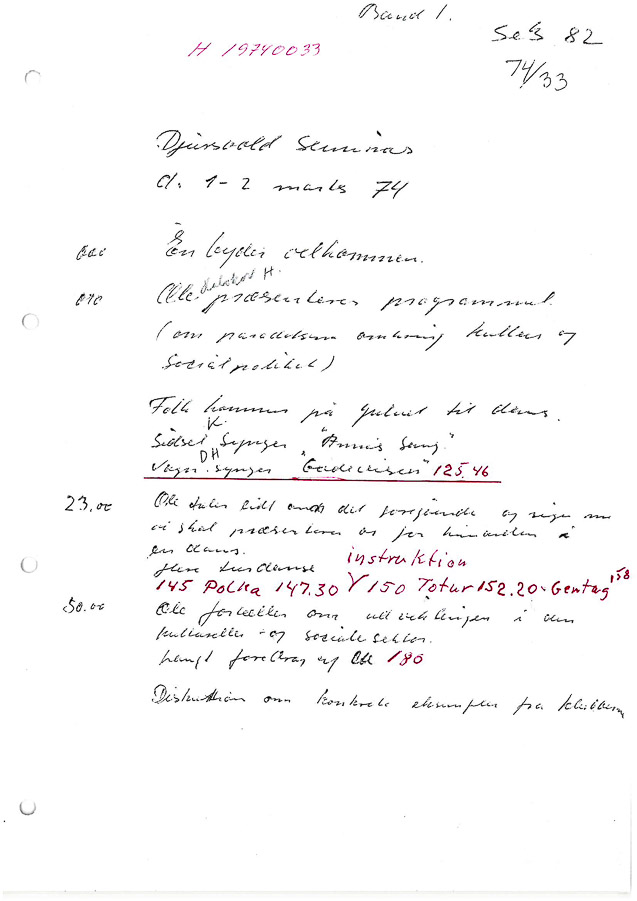 Band 1.
H 19740033
SeS 82
74/33
Djursvold Seminar
d. 1-2 marts 74
000 En byder velkommen.
010 Ole H. præsenterer programmet.
(om paradokserne omkring kultur og
Socialpolitik)
Folk kommer på gulvet til dans.
Sidsel K Synger "Annis Sang"
Vagn DH. synger "Gadevisen" 125.46
23.00 Ole taler lidt det foregående og siger nu
vi skal præsentere os for hinanden i
en dans.
flere turdanse instruktion
145 Polka 147.30 Y 150 Totur 152.20 - Gentag 158
50.00 Ole fortæller om udviklingen i den
kulturelle - og sociale sektor.
Langt foredrag af Ole 180
Diskussion om konkrete eksempler fra klubberne